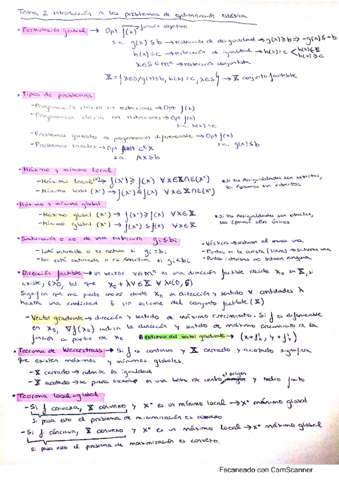 Tema 2 Introducción a los problemas de optimización estática
• Formulación general → Opt f(x) función objetivo
s.a. g(x) ≤ b → restricción de desigualdad → g(x) ≥ b → -g(x) ≤ -b
h(x) = c → restricción de igualdad → h(x) = c
x ∈ S ⊂ → restricción conjuntista
X = {x ∈ D / g(x) ≤ b, h(x) = c, x ∈ S} → X conjunto factible
• Tipos de problemas
- Programación clásica sin restricciones → Opt f(x)
- Programación clásica con restricciones → Opt f(x)
s.a. h(x) = c
- Problemas de programación → Opt f(x)
s.a. g(x) ≤ b
- Problemas lineales → Opt
s.a. Ax ≥ b
• Máximo y mínimo local
- Máximo local (x*) → f(x*) ≥ f(x) ∀x ∈ X ∩ E(x*)
- Mínimo local (x*) → f(x*) ≤ f(x) ∀x ∈ X ∩ E(x*)
* Si las desigualdades son estrictas, los óptimos son estrictos
• Máximo y mínimo global
- Máximo global (x*) → f(x*) ≥ f(x) ∀x ∈ X
- Mínimo global (x*) → f(x*) ≤ f(x) ∀x ∈ X
* Si las desigualdades son estrictas, los óptimos son únicos
• Saturación o no de una restricción gi ≤ bi
- Está saturada o es activa si gi = bi
- No está saturada o es inactiva si gi < bi
- Vértice → saturan al menos una
- Puntos en la arista (línea) → saturan una
- Puntos interiores no saturan ninguna
• Dirección factible → un vector v es una dirección factible desde x0 en X, si existe δ > 0, tal que x0 + λv ∈ X ∀λ ∈ (0, δ)
Significa que me puedo mover desde x0 en dirección y sentido v cantidades λ hasta una cantidad δ sin salirme del conjunto factible (X)
- Vector gradiente → dirección y sentido de máximo crecimiento. Si f es diferenciable en x0, ∇f(x0) indica la dirección y sentido de máximo crecimiento de la función a partir de x0
• Teorema de Weierstrass → Si f es continua y X cerrado y acotado significa que existen máximos y mínimos globales.
- X cerrado → admite la igualdad
- X acotado → se puede encerrar en una bola de centro el origen y radio finito
• Teorema local-global
- Si f convexa, X convexo y x* es un mínimo local → x* mínimo global
si pasa esto el problema de minimización es convexo
- Si f cóncava, X convexo y x* es un máximo local → x* máximo global
si pasa esto el problema de maximización es convexo.
Escaneado con CamScanner